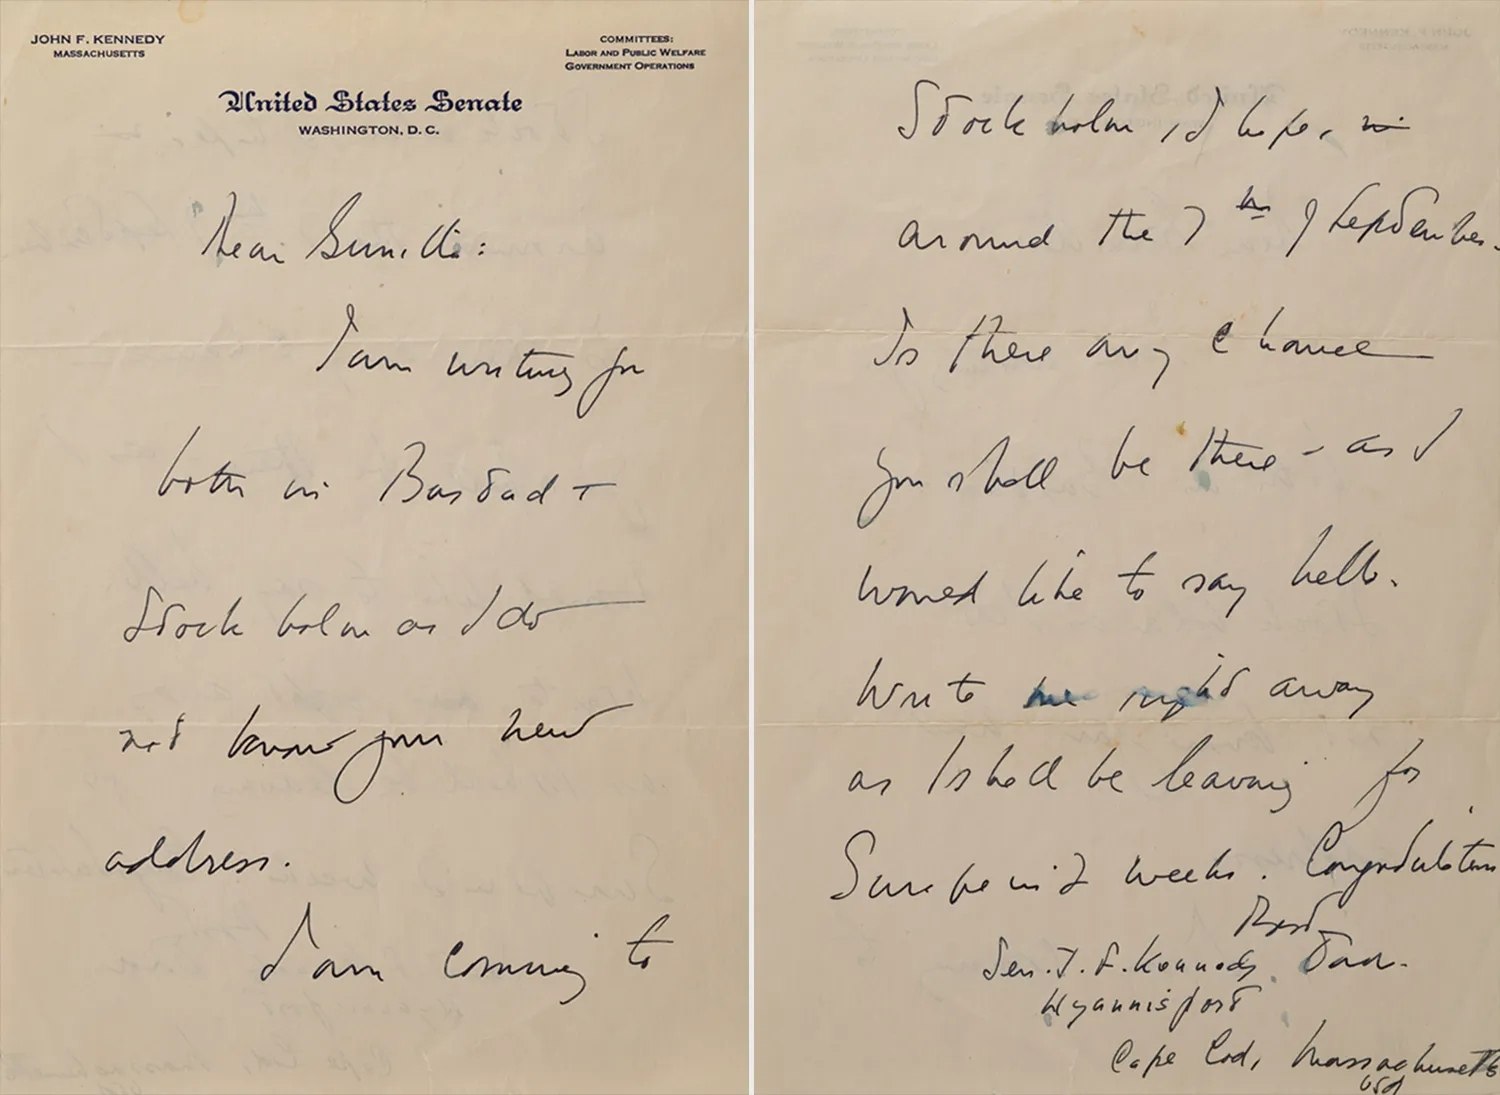 JOHN F. KENNEDY
MASSACHUSETTS
COMMITTEES:
LABOR AND PUBLIC WELFARE
GOVERNMENT OPERATIONS
United States Senate
WASHINGTON, D. C.
Dear Gunilla:
I am writing you
both in Bastad +
Stockholm as I do
not know your new
address.
I am coming to
Stockholm, I hope,
around the 7th of September.
Is there any chance
you shall be there - as I
would like to say hello.
Write me right away
as I shall be leaving for
Europe in 2 weeks. Congratulations
Best
Sen. J. F. Kennedy
Hyannisport
Cape Cod, Massachusetts
USA